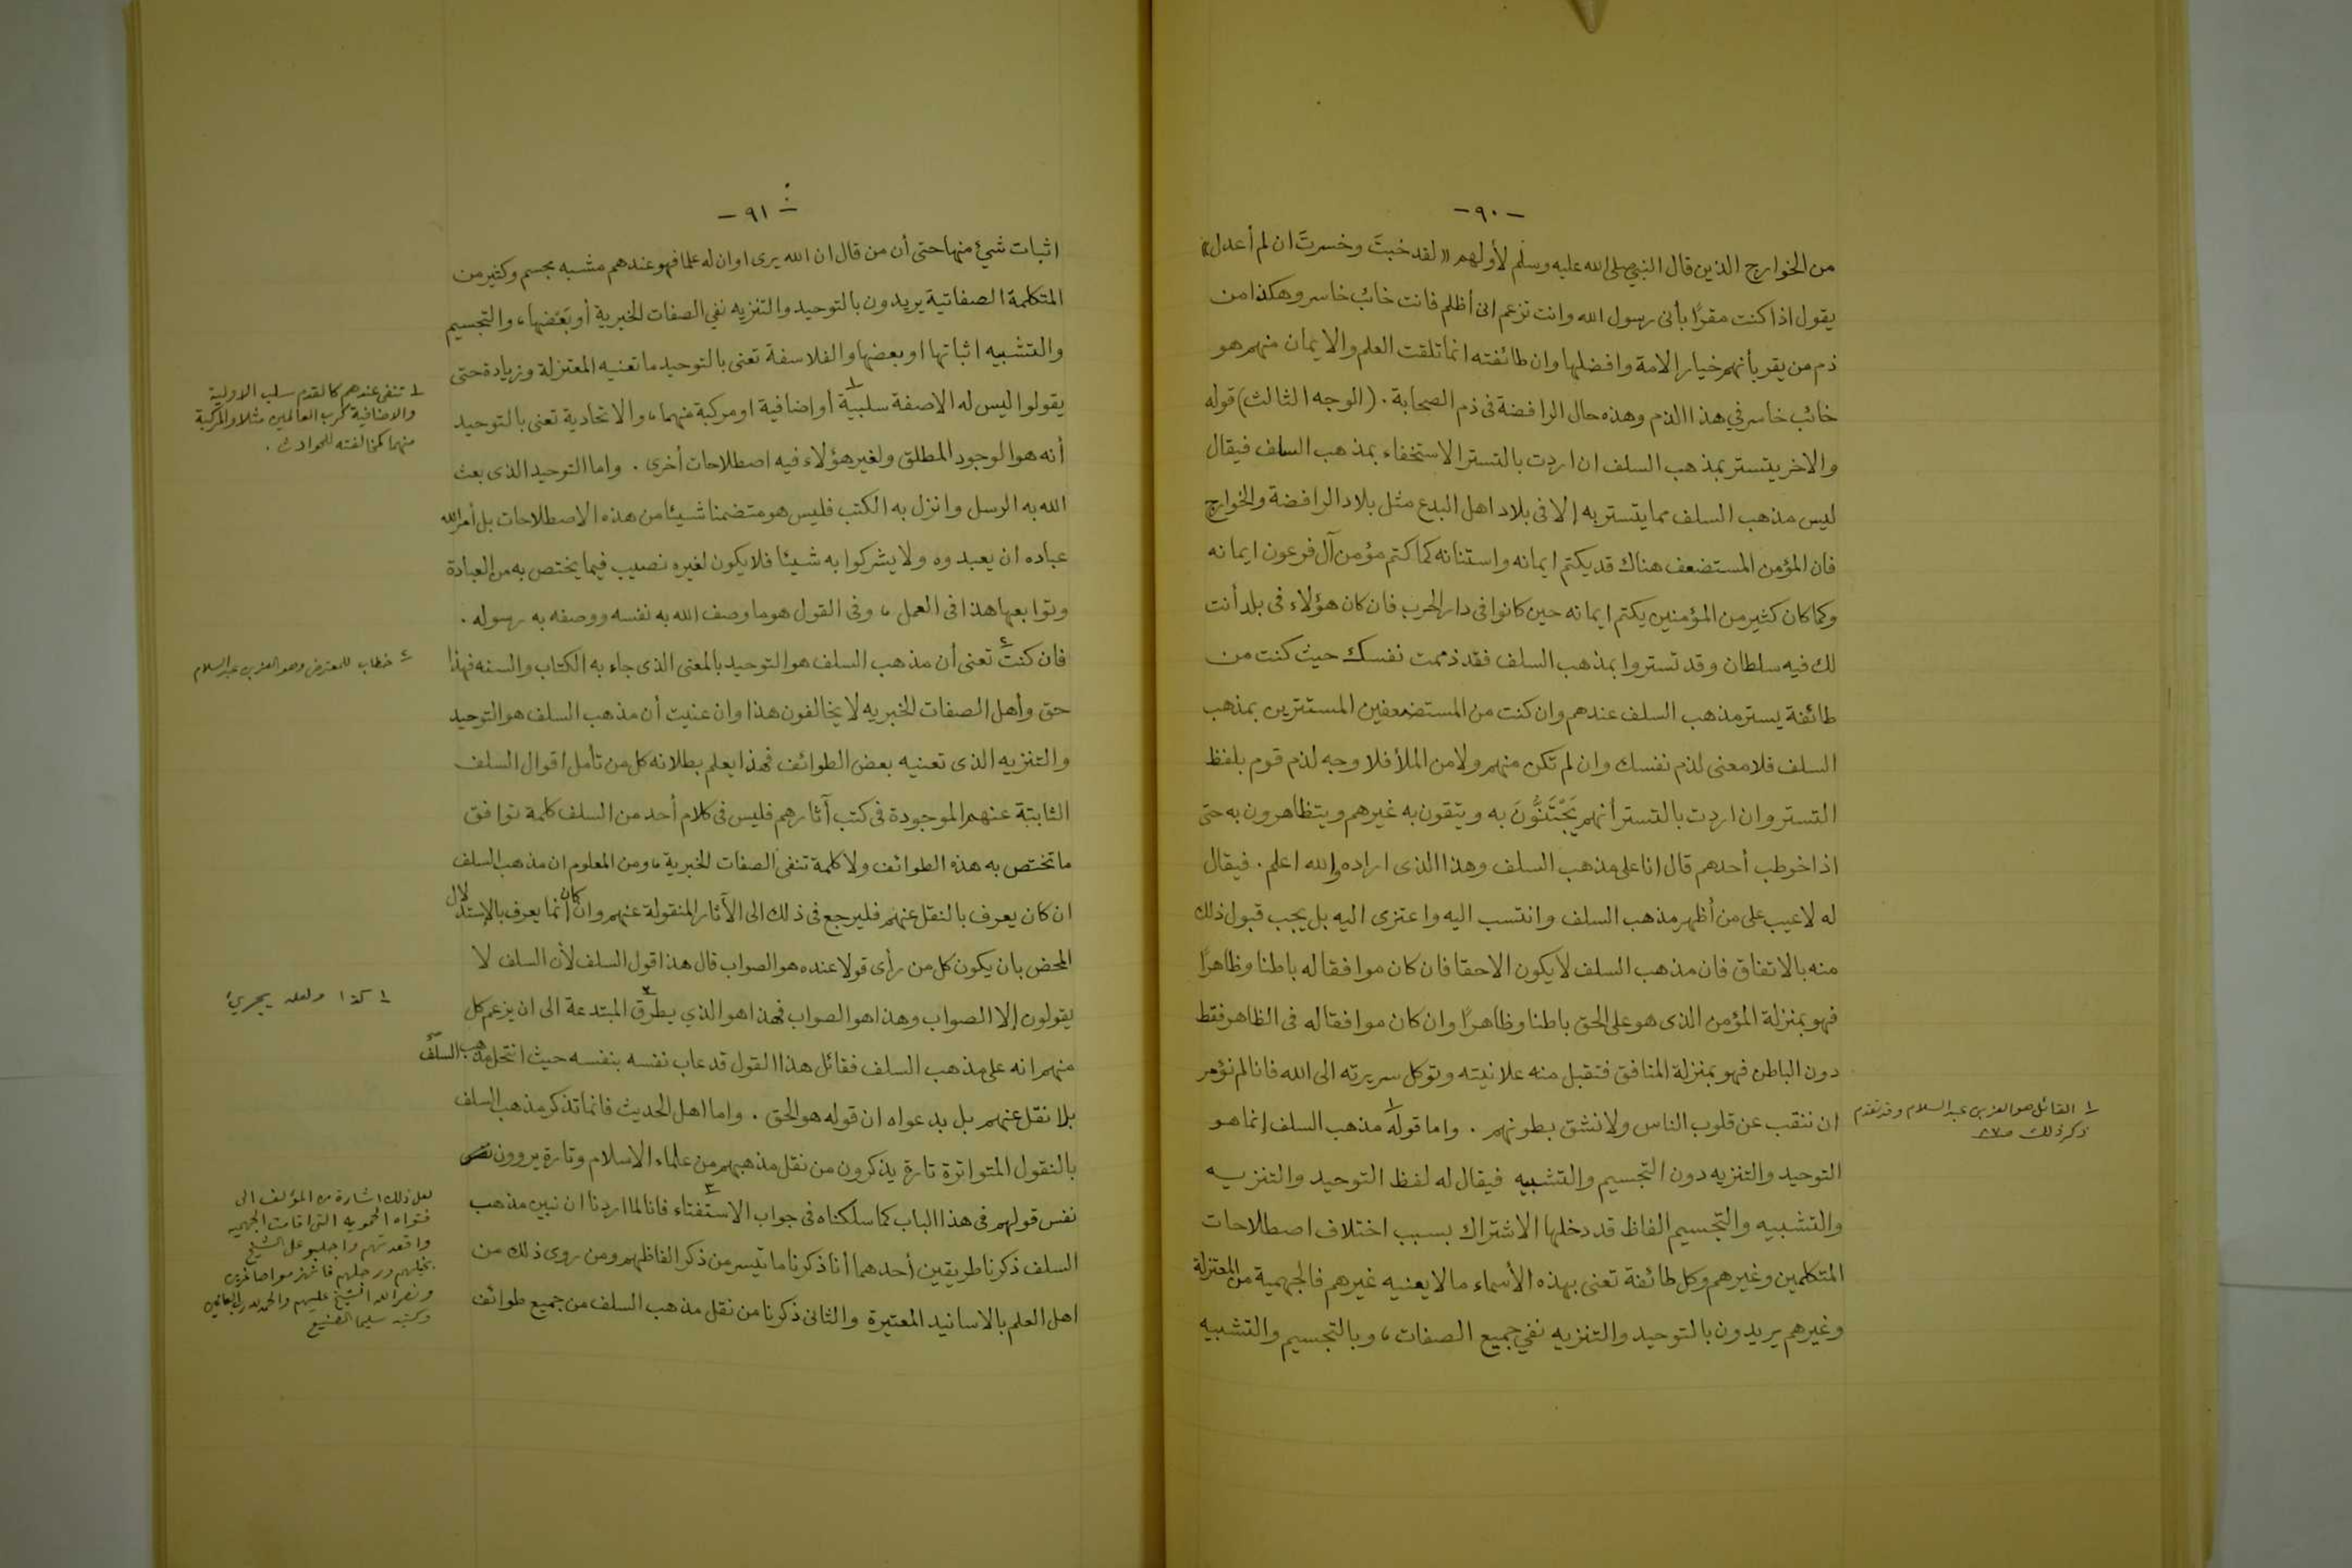 -٩٠-
من الخوارج الذين قال النبي صلى الله عليه وسلم لأولهم «لقد خبتَ وخسرتَ ان لم أعدل»
يقول اذا كنت مقرًا بأنى رسول الله وانت تزعم انى أظلم فانت خائب خاسر وهكذا من
ذم من يقر بأنهم خيار الامة وافضلها وان طائفته انما تلقت العلم والايمان منهم هو
خائب خاسر في هذا الذم وهذه حال الرافضة فى ذم الصحابة . (الوجه الثالث) قوله
والاخر يتستر بمذهب السلف ان اردت بالتستر الاستخفاء بمذهب السلف فيقال
ليس مذهب السلف مما يتستر به إلا فى بلاد اهل البدع مثل بلاد الرافضة والخوارج
فان المؤمن المستضعف هناك قد يكتم ايمانه واستنانه كما كتم مؤمن آل فرعون ايمانه
وكما كان كثير من المؤمنين يكتم ايمانه حين كانوا فى دار الحرب فان كان هؤلاء فى بلد أنت
لك فيه سلطان وقد تستروا بمذهب السلف فقد ذممت نفسك حيث كنت من
طائفة يستر مذهب السلف عندهم وان كنت من المستضعفين المستترين بمذهب
السلف فلا معنى لذم نفسك وان لم تكن منهم ولا من الملأ فلا وجه لذم قوم بلفظ
التستر وان اردت بالتستر أنهم يَجْتَنُّونَ به ويتقون به غيرهم ويتظاهرون به حتى
اذا خوطب أحدهم قال انا على مذهب السلف وهذا الذى اراده والله اعلم . فيقال
له لا عيب على من أظهر مذهب السلف وانتسب اليه واعتزى اليه بل يجب قبول ذلك
منه بالاتفاق فان مذهب السلف لا يكون الاحقا فان كان موافقا له باطنا وظاهرًا
فهو بمنزلة المؤمن الذى هو على الحق باطنا وظاهرًا وان كان موافقا له فى الظاهر فقط
دون الباطن فهو بمنزلة المنافق فتقبل منه علانيته وتوكل سريرته الى الله فانا لم نؤمر
ان ننقب عن قلوب الناس ولا نشق بطونهم . واما قوله ١ مذهب السلف إنما هو
التوحيد والتنزيه دون التجسيم والتشبيه فيقال له لفظ التوحيد والتنزيه
والتشبيه والتجسيم الفاظ قد دخلها الاشتراك بسبب اختلاف اصطلاحات
المتكلمين وغيرهم وكل طائفة تعنى بهذه الأسماء ما لا يعنيه غيرهم فالجهمية من المعتزلة
وغيرهم يريدون بالتوحيد والتنزيه نفي جميع الصفات ، وبالتجسيم والتشبيه
١ القائل هو العز بن عبد السلام وقد تقدم
ذكر ذلك ص٨٧
-٩١-
اثبات شيئ منها حتى أن من قال ان الله يرى او ان له علما فهو عندهم مشبه مجسم وكثير من
المتكلمة الصفاتية يريدون بالتوحيد والتنزيه نفي الصفات الخبرية أو بعضها ، والتجسيم
والتشبيه اثباتها او بعضها والفلاسفة تعنى بالتوحيد ما تعنيه المعتزلة وزيادة حتى
يقولوا ليس له الا صفة سلبية ١ أو اضافية او مركبة منهما ، والاتحادية تعنى بالتوحيد
أنه هو الوجود المطلق ولغير هؤلاء فيه اصطلاحات أخرى . واما التوحيد الذى بعث
الله به الرسل وانزل به الكتب فليس هو متضمنا شيئا من هذه الاصطلاحات بل أمر الله
عباده ان يعبدوه ولا يشركوا به شيئا فلا يكون لغيره نصيب فيما يختص به من العبادة
وتوابعها هذا فى العمل ، وفى القول هو ما وصف الله به نفسه ووصفه به رسوله .
فان كنت ٤ تعنى أن مذهب السلف هو التوحيد بالمعنى الذى جاء به الكتاب والسنه فهذا
حق وأهل الصفات الخبريه لا يخالفون هذا وان عنيت أن مذهب السلف هو التوحيد
والتنزيه الذى تعنيه بعض الطوائف فهذا يعلم بطلانه كل من تأمل اقوال السلف
الثابتة عنهم الموجودة فى كتب آثارهم فليس فى كلام أحد من السلف كلمة توافق
ما تختص به هذه الطوائف ولا كلمة تنفى الصفات الخبرية ، ومن المعلوم ان مذهب السلف
ان كان يعرف بالنقل عنهم فليرجع فى ذلك الى الآثار المنقولة عنهم وان كان انما يعرف بالإستدلال
المحض بان يكون كل من رأى قولا عنده هو الصواب قال هذا قول السلف لأن السلف لا
يقولون إلا الصواب وهذا هو الصواب فهذا هو الذي يطرق ٢ المبتدعة الى ان يزعم كل
منهم انه على مذهب السلف فقائل هذا القول قد عاب نفسه بنفسه حيث انتحل مذهب السلف
بلا نقل عنهم بل بدعواه ان قوله هو الحق . واما اهل الحديث فانما تذكر مذهب السلف
بالنقول المتواترة تارة يذكرون من نقل مذهبهم من علماء الاسلام وتارة يروون
نفس قولهم فى هذا الباب كما سلكناه فى جواب الاستفتاء ٣ فانا لما اردنا ان نبين مذهب
السلف ذكرنا طريقين أحدهما أنا ذكرنا ما تيسر من ذكر الفاظهم ومن روى ذلك من
اهل العلم بالاسانيد المعتبرة والثانى ذكرنا من نقل مذهب السلف من جميع طوائف
١ تنفى عندهم كالقدم سلب الاولية
والاضافية كرب العالمين مثلا والمركبة
منهما كمخالفته للحوادث .
٤ خطاب للمعترض وهو العز بن عبد السلام
١ كذا ولعله يجرئ
لعل ذلك اشارة من المؤلف الى
فتواه الحمويه التى اقامت الجهميه
واقعدتهم واجلبو على الشيخ
بخيلهم ورجلهم فانهزموا صاغرين
ونصر الله الشيخ عليهم والحمد لله رب العالمين
وكتبه سليمان الصنيع